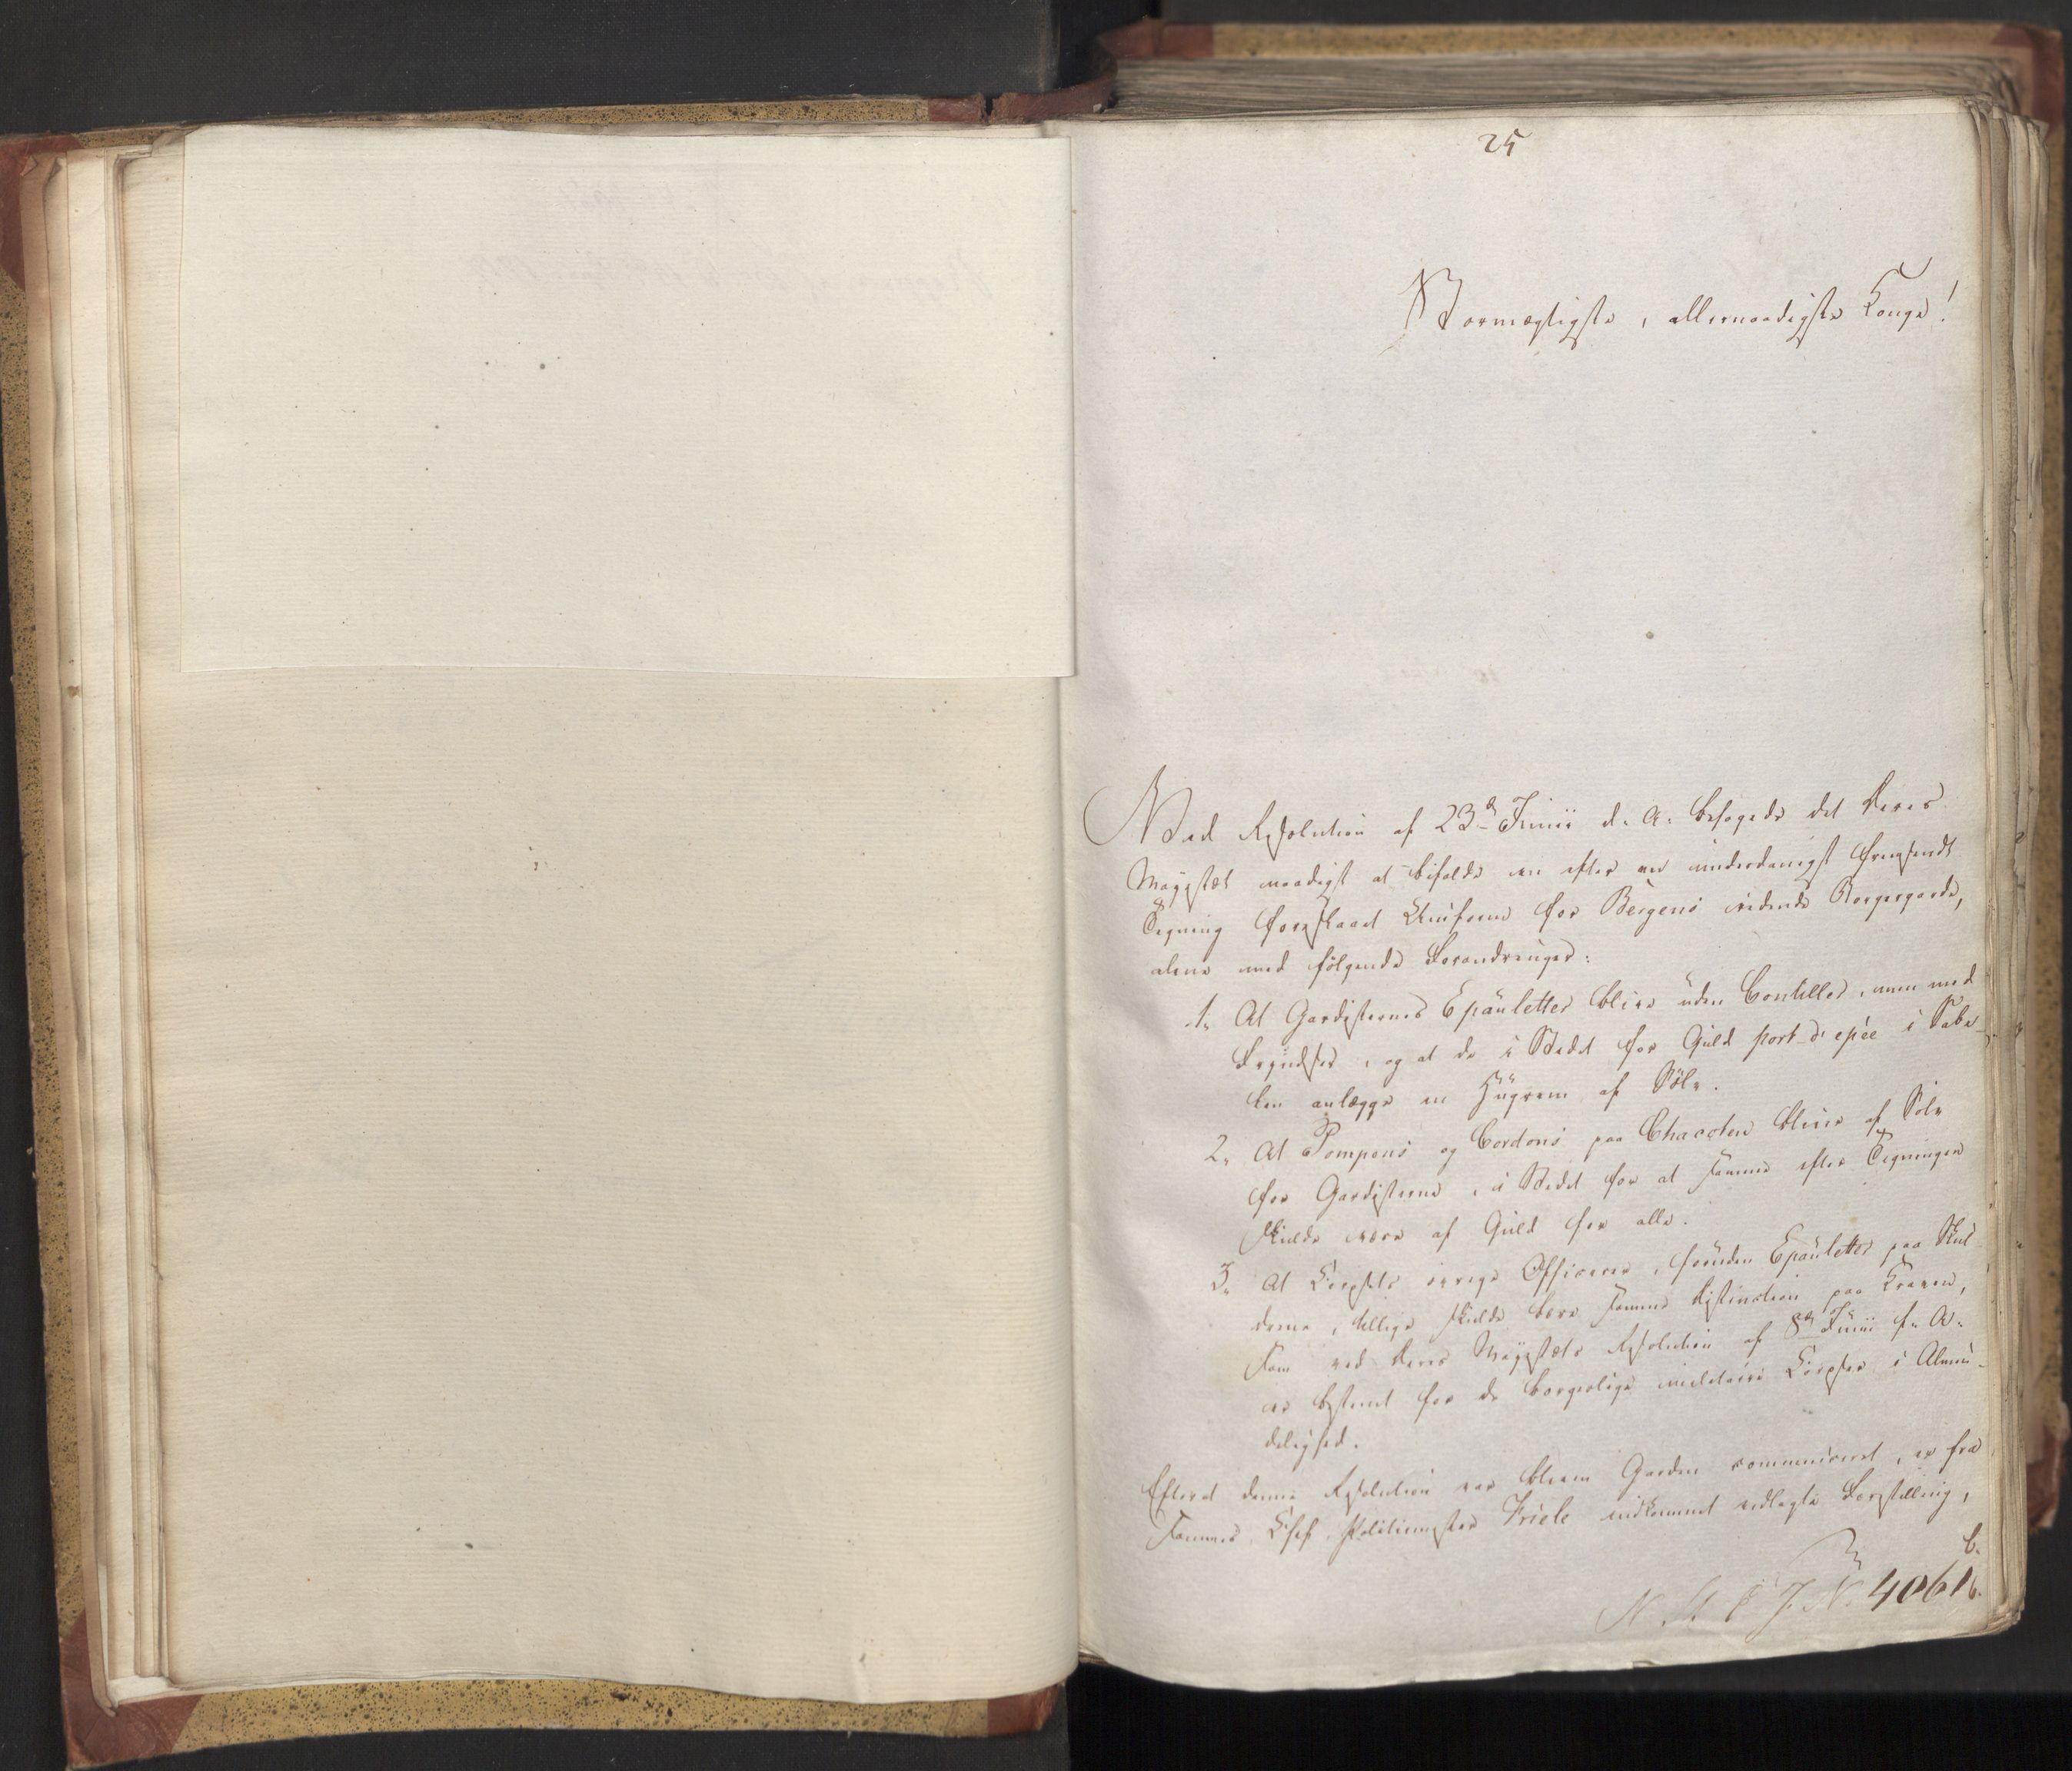 25
Stormægtigste, allernaadigste Konge!
Ved Resolution af 23d Junii d. A. behagede det Deres
Majestæt naadigst at bifalde en efter en underdanigst fremsendt
Tegning foreslaaet Uniform for Bergens ridende Borgergarde,
alene med følgende Forandringer:
1, At Gardisternes Epauletter blive uden Contiller, men med
Fryndser, og at de i Stedet for Guld port d'epée i Sabe-
len anlægge en af Sölv.
2, At Pompons og Cordons paa Chacoten bliver af Sölv
for Gardisterne, i Stedet for at samme efter Tegningen
skulde være af Guld for alle.
3, At Corpsets övrige Officerer, foruden Epauletter paa Skul-
drene, tillige skulde bære samme Distinction paa Kraven,
som ved Deres Majestæts Resolution af 8de Junii f. A.
er bestemt for de borgerlige militaire Corpser i Almin-
delighed.
Efterat denne Resolution var bleven Garden communiceret, er fra
sammes Chef, Politimester Friele indkommet vedlagte Forestilling,
6.
J. N. 4061